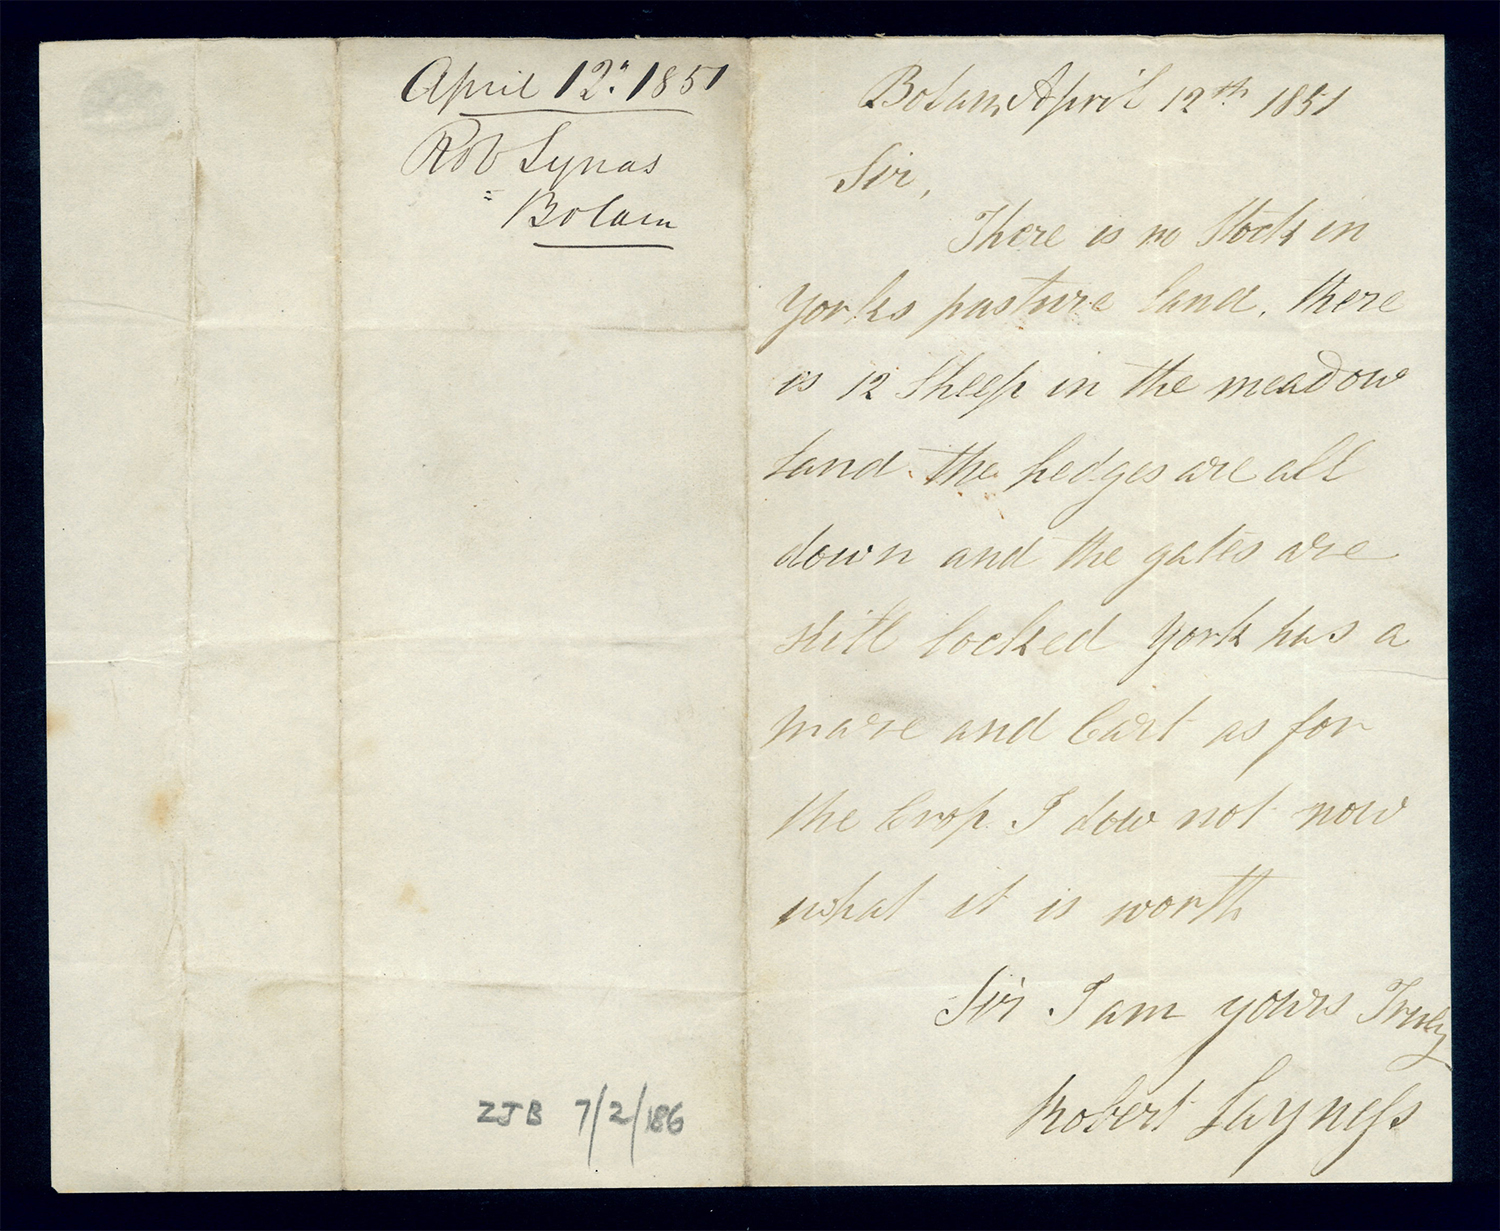 April 12th 1851
Rob Synas
Bolam
ZJB 7/2/186
Bolam April 12th 1851
Sir,
There is no Stock in
Yorks pasture land. there
is 12 Sheep in the meadow
land the hedges are all
down and the gates are
still locked York has a
mare and Cart as for
the Crop I dow not now
what it is worth
Sir I am yours Truly
Robert Sayness